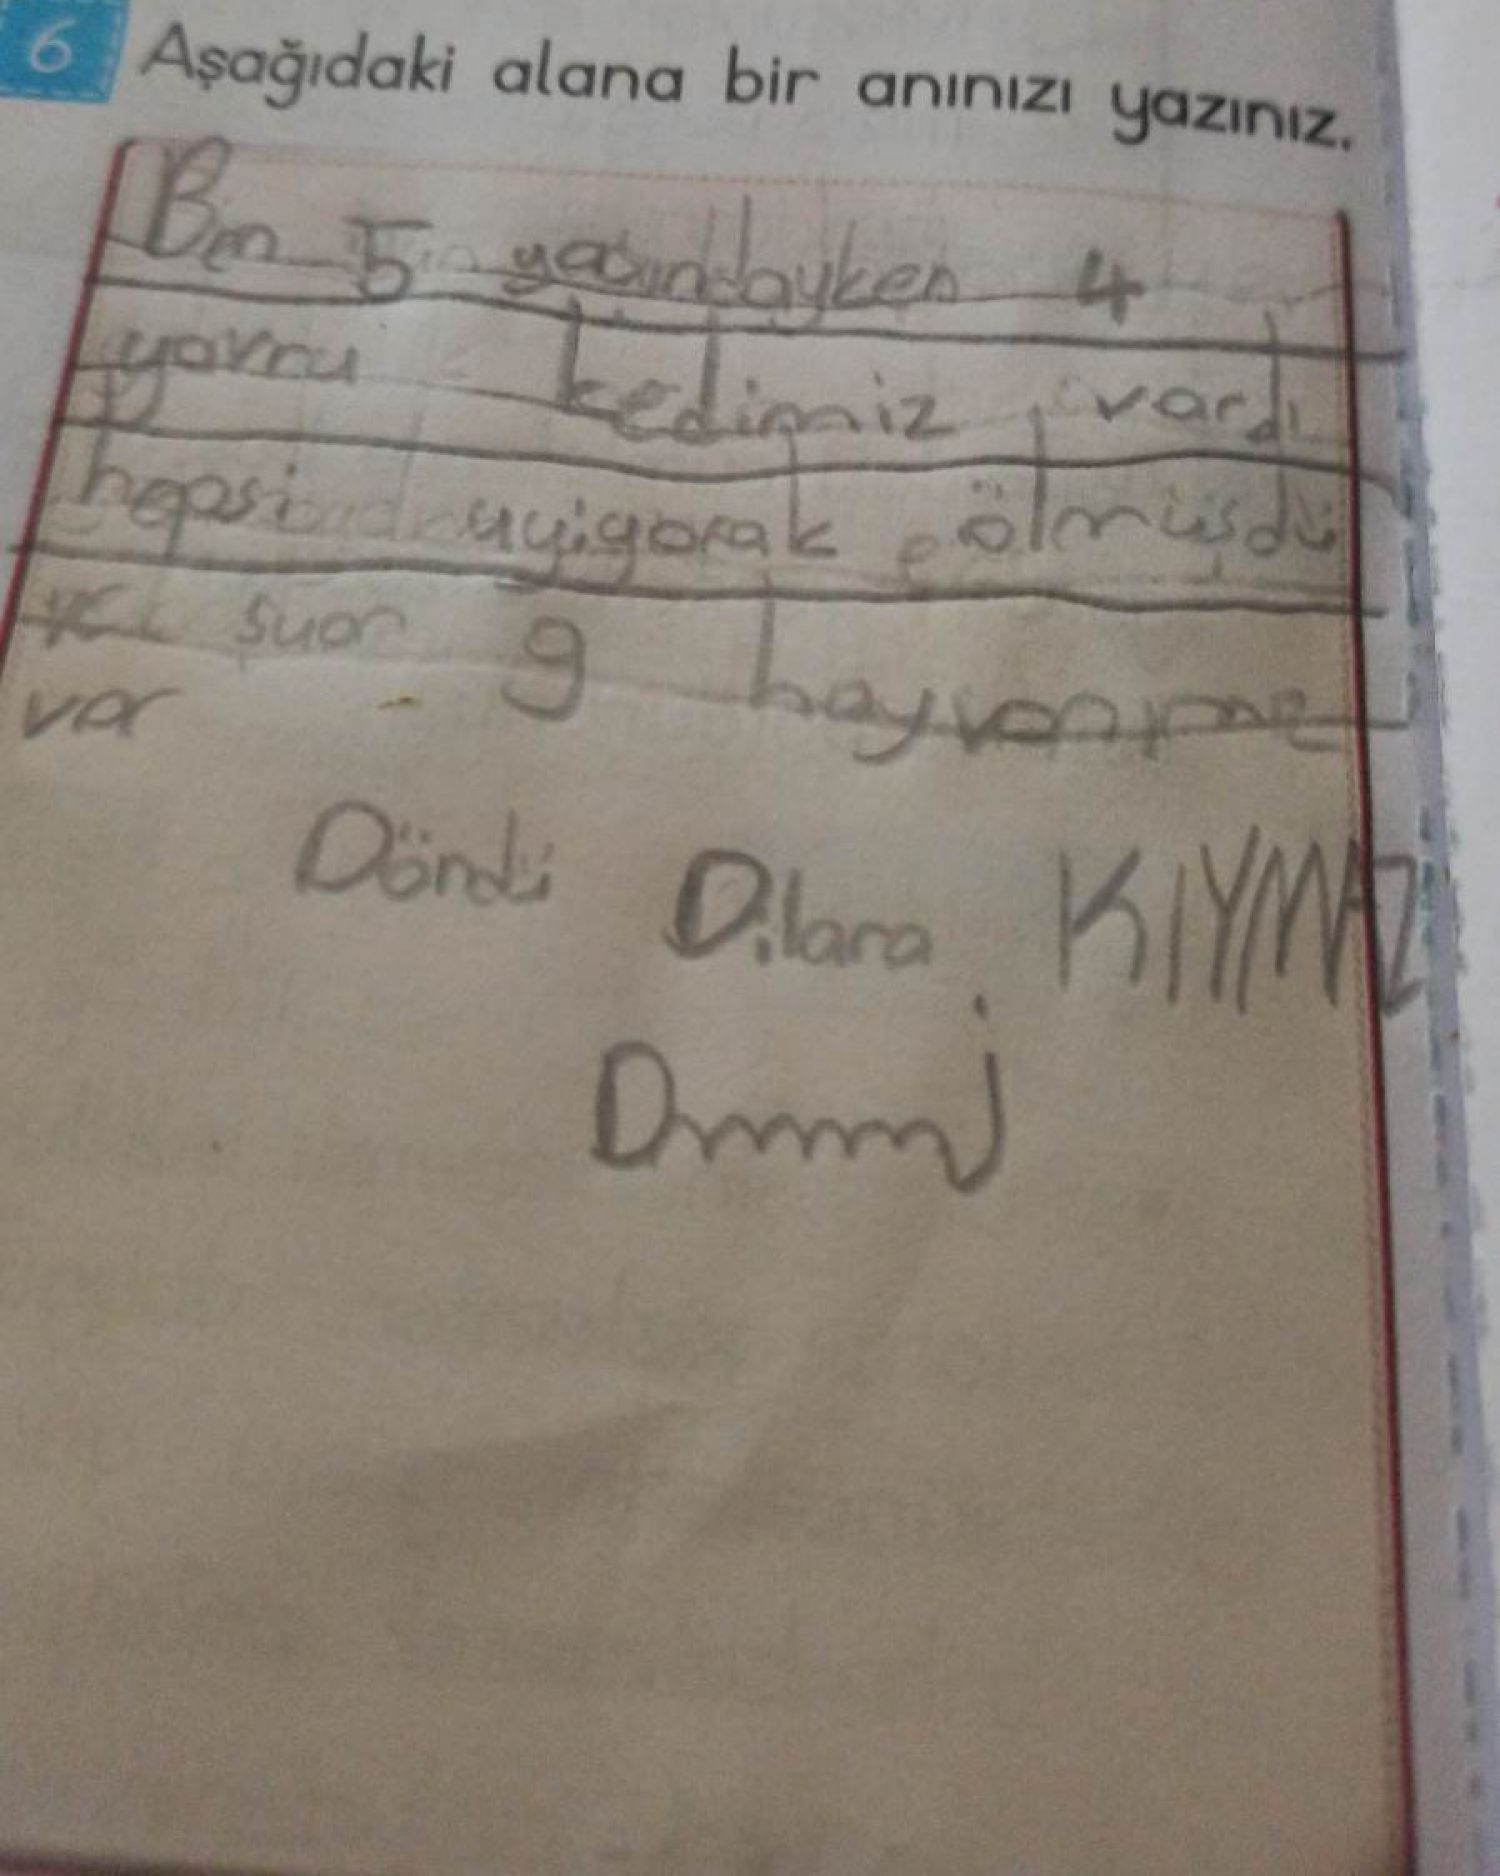 6 Aşağıdaki alana bir anınızı yazınız.
Bn 5 yaşındayken 4
yavru kedimiz vardı
hepsi uyiyorak ölmüşdü
şuan 9 hayvanımız
var
Döndü Dilara KIYMAZ